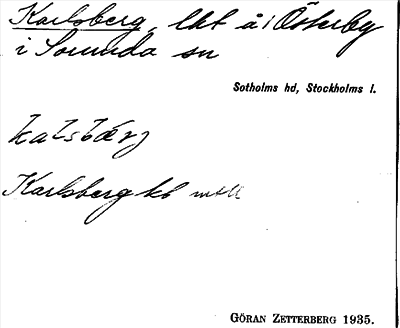 Karlsberg, lht å Österby
i Sorunda sn
Sotholms hd, Stockholms l.
Karlsberg kb
GÖRAN ZETTERBERG 1935.